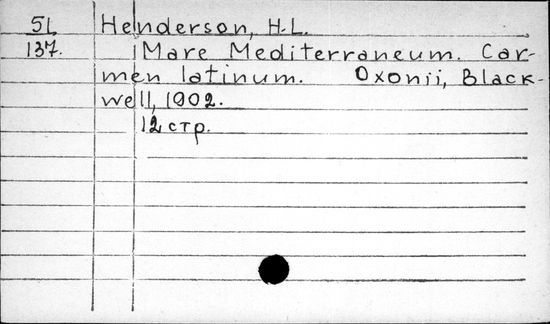 51 Henderson, H.L.
137. Mare Mediterraneum. Car-
men latinum. Oxonii, Black-
well, 1902.
12 стр.